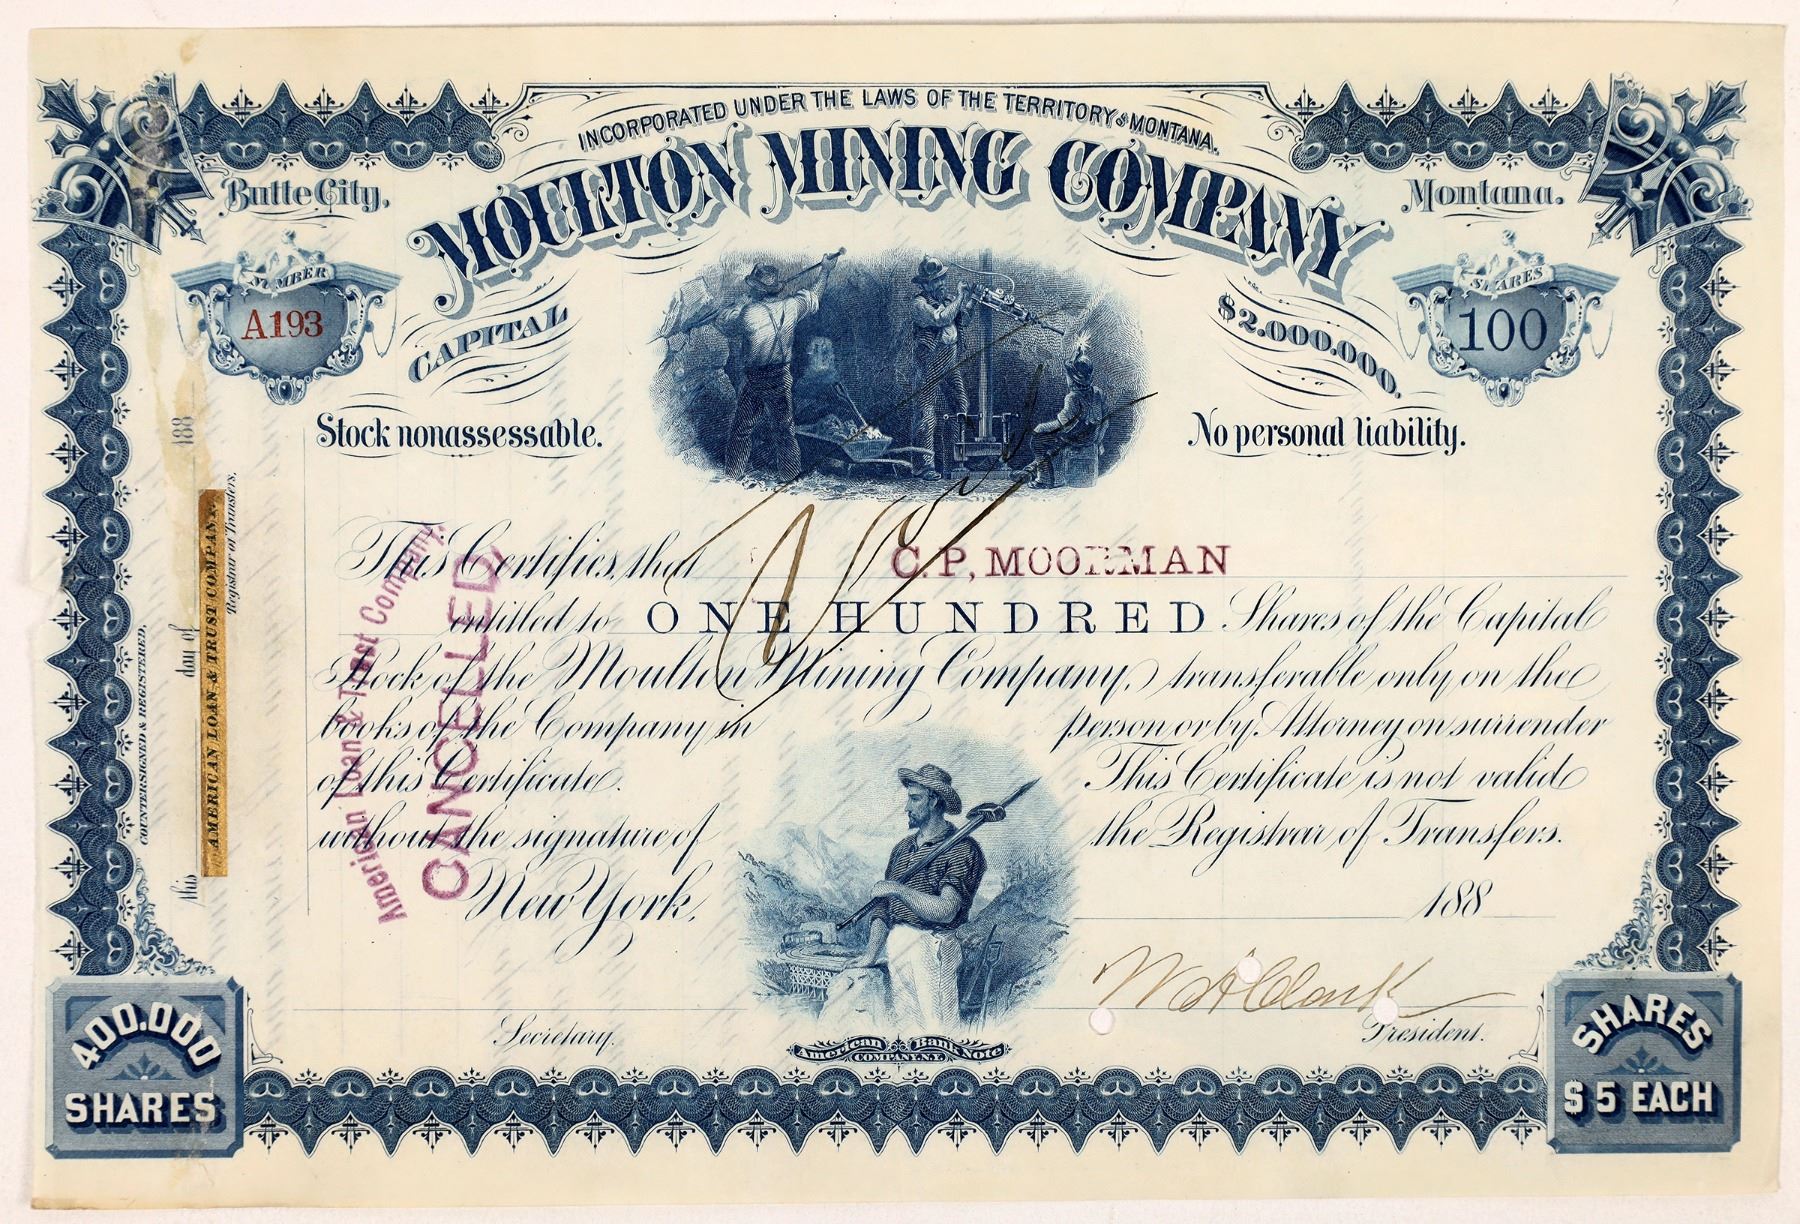 INCORPORATED UNDER THE LAWS OF THE TERRITORY OF MONTANA.
MOULTON MINING COMPANY
Butte City, Montana.
NUMBER
A193
SHARES
100
CAPITAL $2.000.000,
Stock nonassessable. No personal liability.
This Certifies that C.P. MOORMAN
entitled to ONE HUNDRED Shares of the Capital
Stock of the Moulton Mining Company, transferable only on the
books of the Company in person or by Attorney on surrender
of this Certificate. This Certificate is not valid
without the signature of the Registrar of Transfers.
New York, 188
W A Clark
Secretary. President.
American Bank Note
COMPANY. N.Y.
400.000
SHARES
SHARES
$5 EACH
COUNTERSIGNED & REGISTERED,
this day of 188
AMERICAN LOAN & TRUST COMPANY.
Registrar of Transfers.
American Loan & Trust Company.
CANCELLED